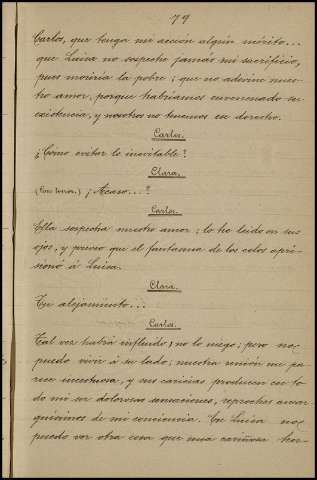 79
Carlos, que tenga mi acción algún mérito...
que Luisa no sospeche jamás mi sacrificio,
pues moriría la pobre; que no adivine nues-
tro amor, porque habríamos envenenado su
existencia, y nosotros no tenemos ese derecho.
Carlos.
¿Cómo evitar lo inevitable?
Clara.
(Con terror.) ¡Acaso...?
Carlos.
Ella sospecha nuestro amor; lo he leido en sus
ojos, y preveo que el fantasma de los celos apri-
sionó á Luisa.
Clara.
Tu alejamiento...
Carlos.
Tal vez habrá influido; no lo niego; pero no
puedo vivir á su lado; nuestra unión me pa-
rece incestuosa, y sus caricias producen en to-
do mi ser dolorosas sensaciones, reproches amar-
guísimos de mi conciencia. En Luisa no
puedo ver otra cosa que una cariñosa her-